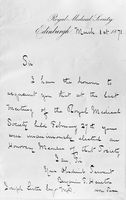 Royal Medical Society
Edinburgh March 1st 1871
Sir
I have the honour to
acquaint you that at the last
meeting of the Royal Medical
Society held February 27th you
were unanimously elected an
Honorary Member of that Society
I am Sir
Your Obedient Servant
Joseph Lister Esq